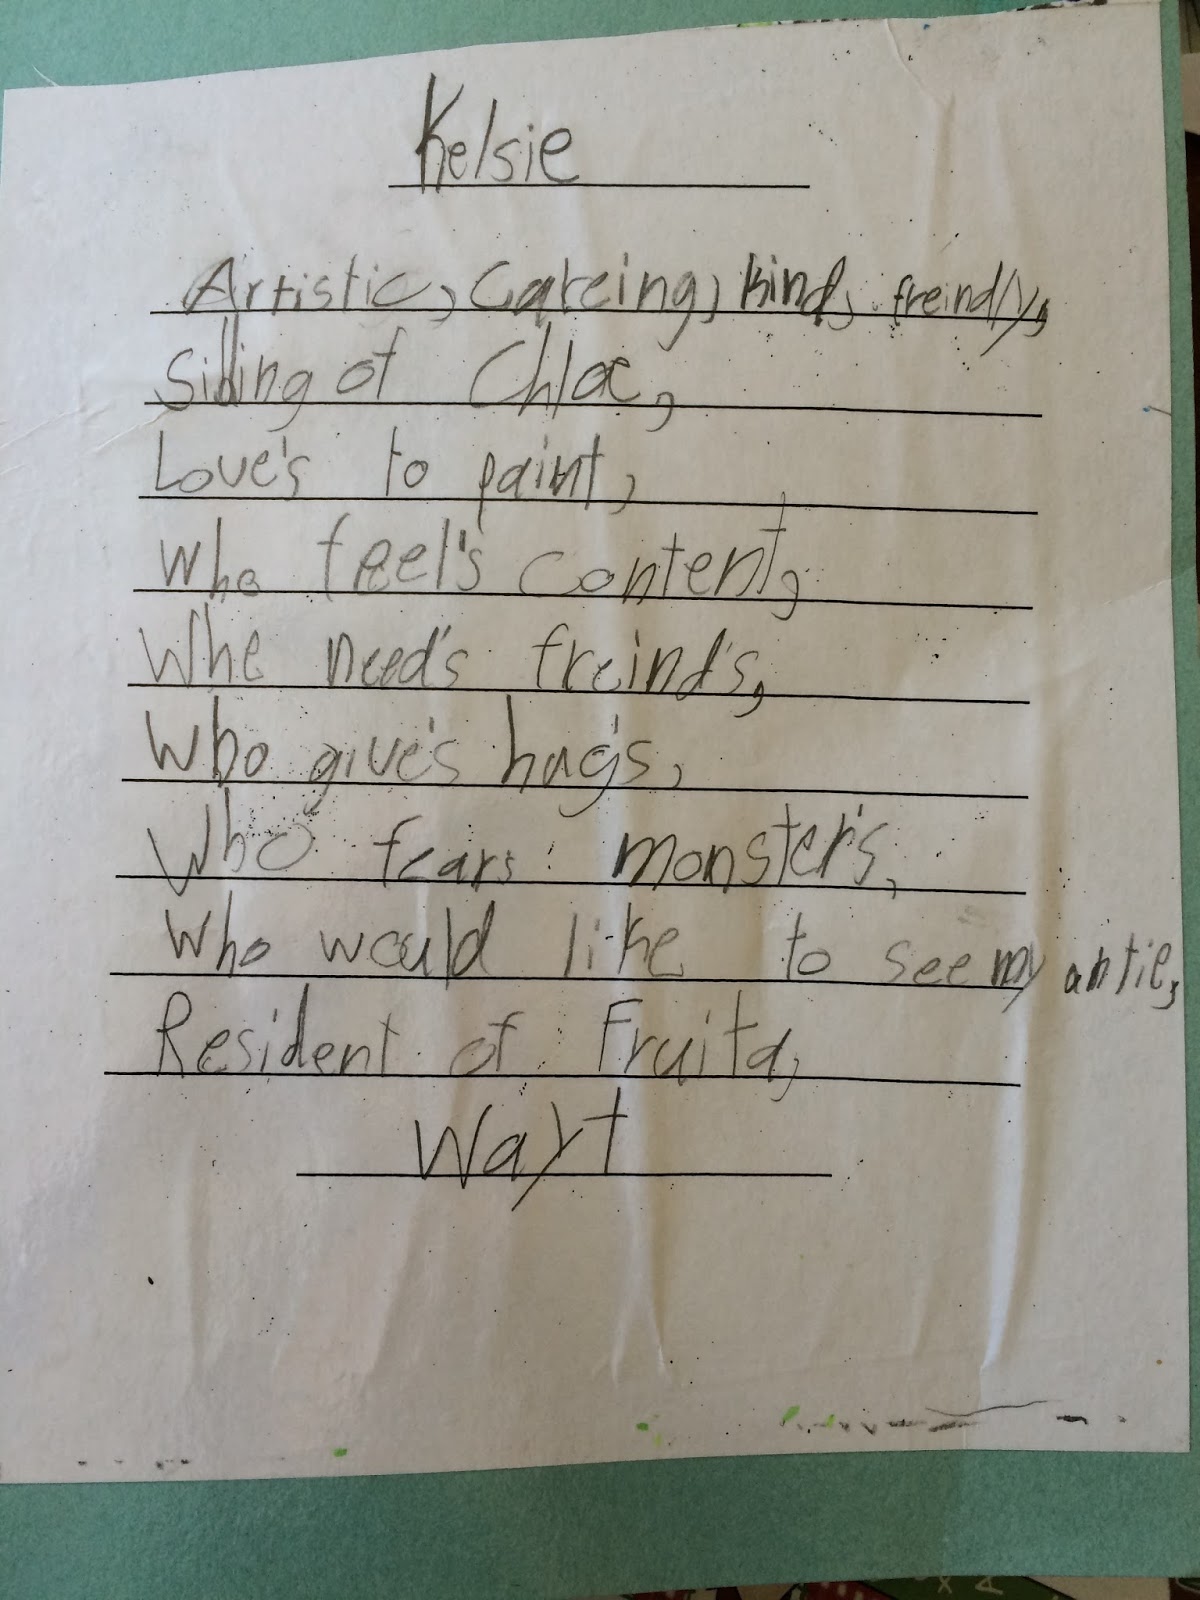 Kelsie
Artistic, Careing, kind, freindly,
Sibling of Chloe,
Love's to paint,
Who feel's content,
Who need's freind's,
Who give's hug's,
Who fears monster's,
Who would like to see my antie,
Resident of Fruita,
Wayt